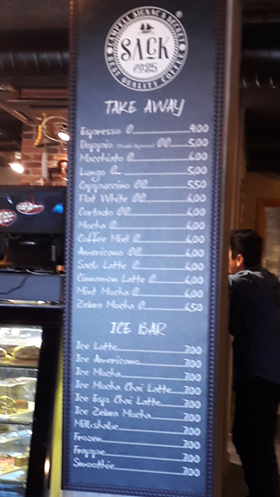 CAMPELL SIGNAC & SECRET
SACK
BEST QUALITY COFFEE
TAKE AWAY
Espresso 4,00
Doppio 5,00
Macchiato 6,00
Lungo 5,00
Cappuccino 5,50
Flat White 6,00
Cortado 6,00
Mocha 6,00
Coffee Miel 6,00
Americano 6,00
Sack Latte 6,00
Cinnamon Latte 6,00
Mint Mocha 6,00
Zebra Mocha 6,50
ICE BAR
Ice Latte 7,00
Ice Americano 7,00
Ice Mocha 7,00
Ice Mocha Chai Latte 7,00
Ice Ega Chai Latte 7,00
Ice Zebra Mocha 7,00
Milkshake 7,00
Frozen 7,00
Frappe 7,00
Smoothie 7,00